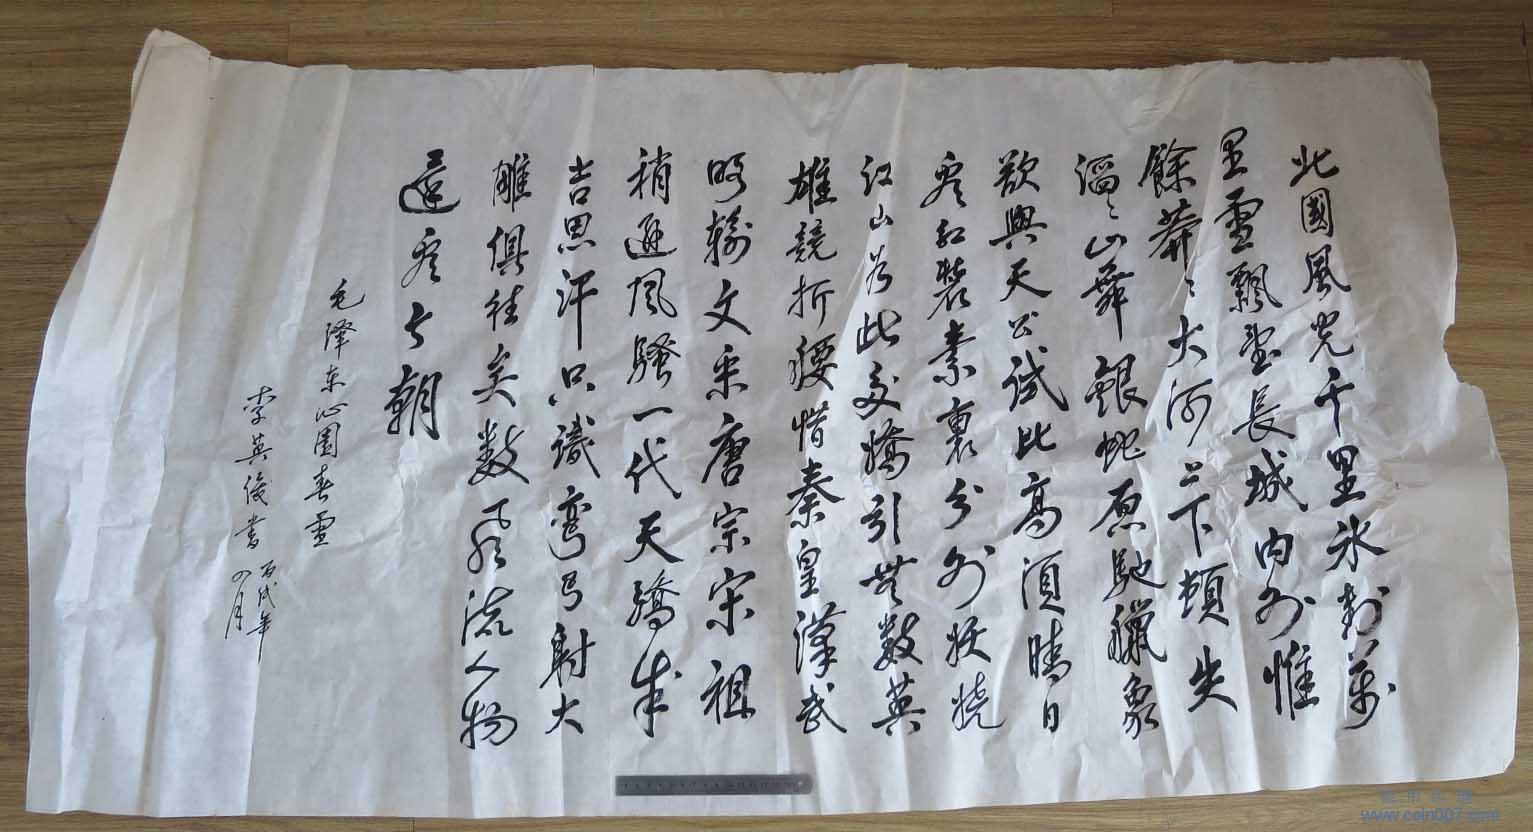 北國風光千里冰封萬
里雪飄望長城内外惟
餘莽〻大河上下頓失
滔〻山舞銀蛇原馳臘象
欲與天公試比高須晴日
看紅裝素裹分外妖嬈
江山如此多嬌引無數英
雄競折腰惜秦皇漢武
略輸文采唐宗宋祖
稍遜風騷一代天驕成
吉思汗只識彎弓射大
雕俱往矣數風流人物
還看今朝
毛澤东沁園春雪
李英俊書
丙戌年
四月
www.coin007.com